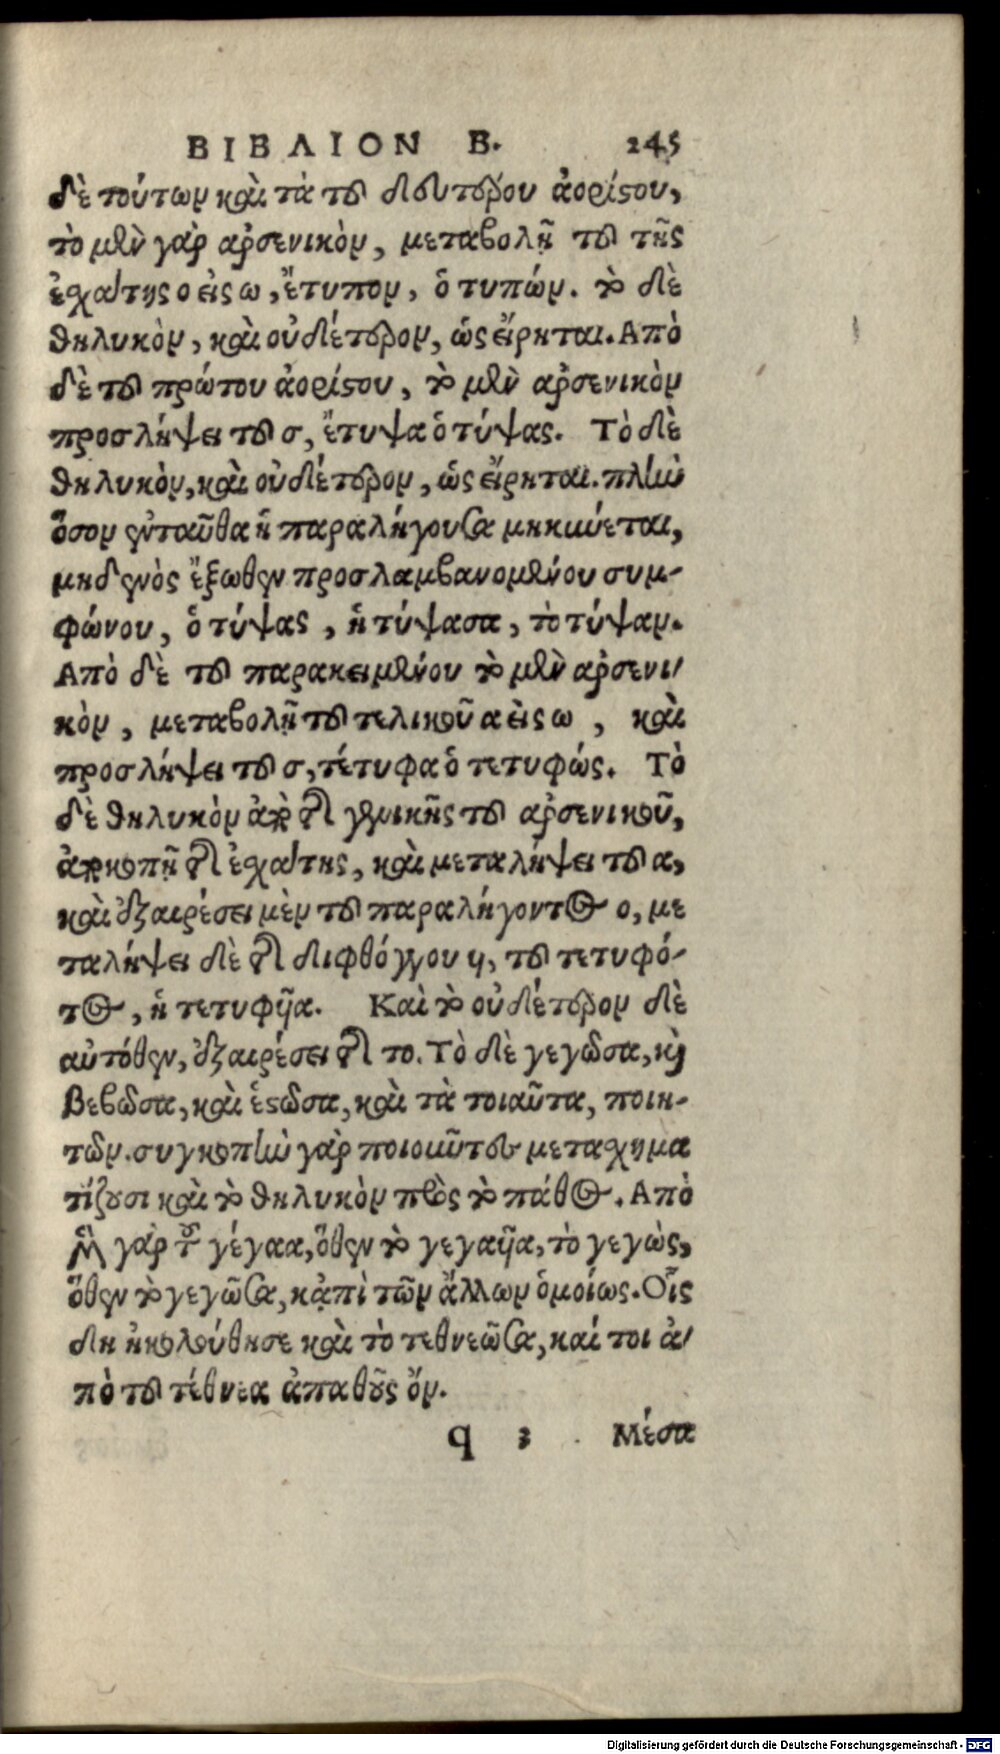 ΒΙΒΛΙΟΝ Β. 245
δὲ τούτων καὶ τὰ τοῦ δευτέρου ἀορίστου,
τὸ μὲν γὰρ ἀρσενικὸν, μεταβολῇ τοῦ τῆς
ἐσχάτης ο εἰς ω, ἔτυπον, ὁ τυπών. τὸ δὲ
θηλυκὸν, καὶ οὐδέτερον, ὡς εἴρηται. Ἀπὸ
δὲ τοῦ πρώτου ἀορίστου, τὸ μὲν ἀρσενικὸν
προσλήψει τοῦ σ, ἔτυψα ὁ τύψας. Τὸ δὲ
θηλυκὸν, καὶ οὐδέτερον, ὡς εἴρηται. πλὴν
ὅσον ἐνταῦθα ἡ παραλήγουσα μηκύνεται,
μηδενὸς ἔξωθεν προσλαμβανομένου συμ-
φώνου, ὁ τύψας, ἡ τύψασα, τὸ τύψαν.
Ἀπὸ δὲ τοῦ παρακειμένου τὸ μὲν ἀρσενι
κὸν, μεταβολῇ τοῦ τελικοῦ α εἰς ω, καὶ
προσλήψει τοῦ σ, τέτυφα ὁ τετυφώς. Τὸ
δὲ θηλυκὸν ἀπὸ τῆς γενικῆς τοῦ ἀρσενικοῦ,
ἀποκοπῇ τῆς ἐσχάτης, καὶ μεταλήψει τοῦ α,
καὶ ἐξαιρέσει μὲν τοῦ παραλήγοντος ο, με
ταλήψει δὲ τῆς διφθόγγου υι, τοῦ τετυφό-
τος, ἡ τετυφυῖα. Καὶ τὸ οὐδέτερον δὲ
αὐτόθεν, ἐξαιρέσει τῆς το. Τὸ δὲ γεγῶσα, καὶ
βεβῶσα, καὶ ἑστῶσα, καὶ τὰ τοιαῦτα, ποιη-
τῶν. συγκοπὴν γὰρ ποιοῦντες μετασχημα
τίζουσι καὶ τὸ θηλυκὸν πρὸς τὸ πάθος. Ἀπὸ
μὲν γὰρ τοῦ γέγαα, ὅθεν τὸ γεγαυῖα, τὸ γεγὼς,
ὅθεν τὸ γεγῶσα, κἀπὶ τῶν ἄλλων ὁμοίως. Οἷς
δὴ ἠκολούθησε καὶ τὸ τεθνεῶσα, καί τοι ἀ
πὸ τοῦ τέθνεα ἀπαθοῦς ὄν.
q 3 Μέσα
Digitalisierung gefördert durch die Deutsche Forschungsgemeinschaft - DFG